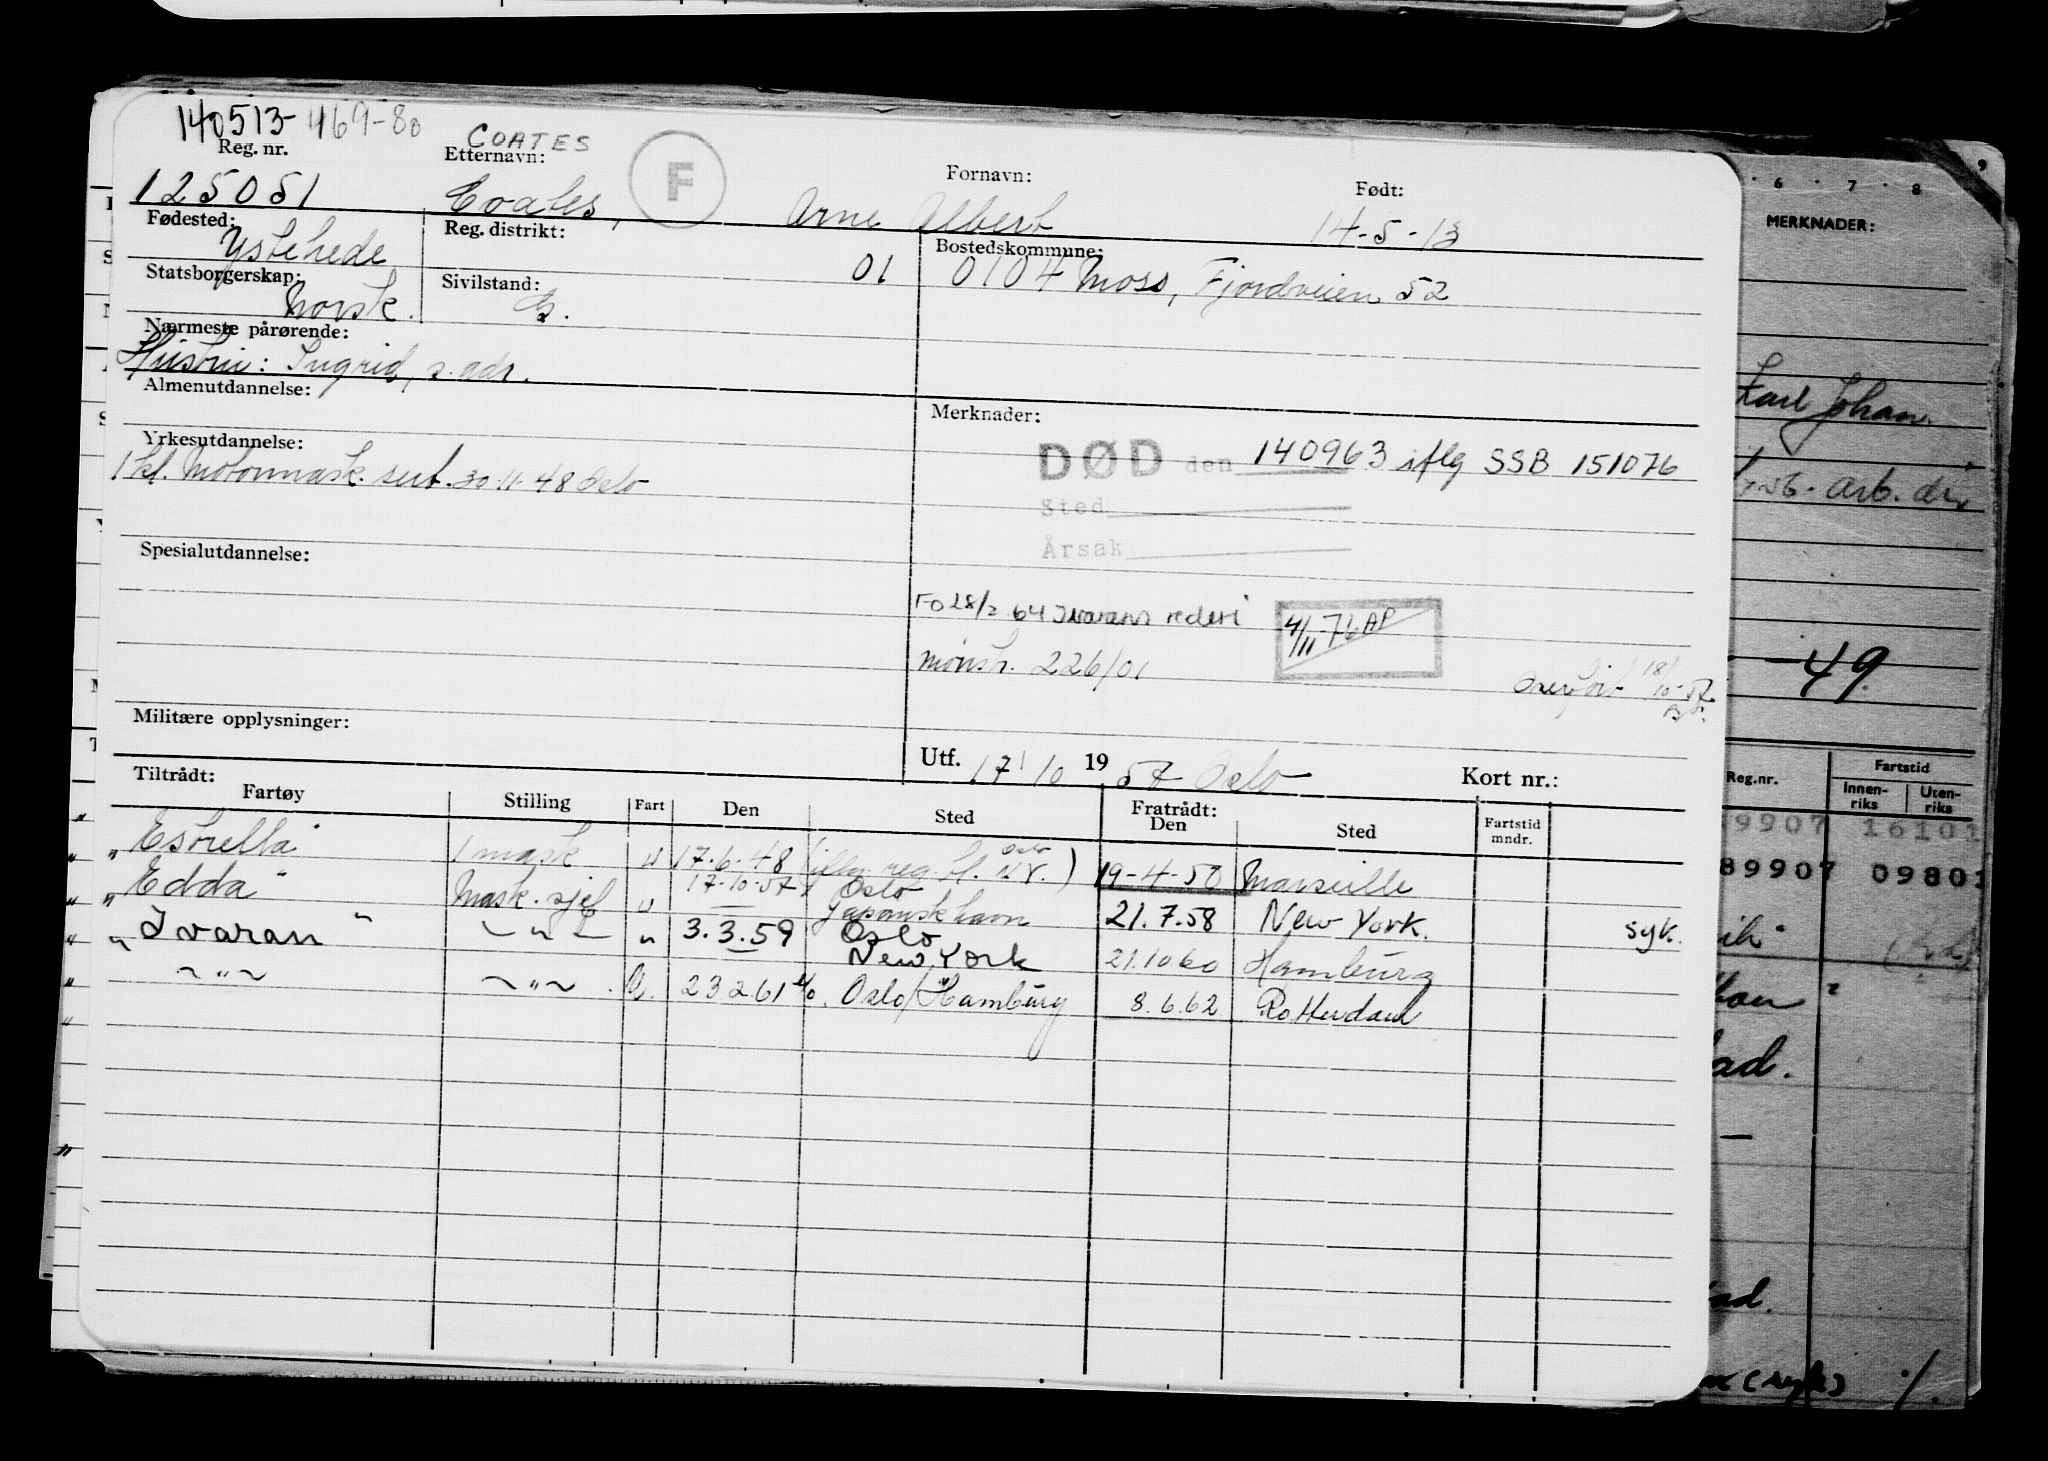 140513-46980
COATES
Reg. nr.
Etternavn:
F
Fornavn:
Født:
125051
Coates,
Arne Albert
14-5-13
Fødested:
Ystehede
Reg. distrikt:
01
Bostedskommune:
0104 Moss, Fjordveien 52
Statsborgerskap:
Norsk.
Sivilstand:
G.
Nærmeste pårørende:
Hustru: Ingrid, s. adr.
Almenutdannelse:
Merknader:
Yrkesutdannelse:
1 kl. Motormask. sert. 30-11-48 Oslo
DØD den 140963 iflg SSB 151076
Sted
Årsak
Spesialutdannelse:
FO 28/2 64 Ivarans rederi
4/11-76 AP
mønstr. 226/01
Overført 18/10-57
Militære opplysninger:
Utf. 17/10 1957 Oslo
Kort nr.:
Tiltrådt:
Fartøy
Stilling
Fart
Den
Sted
Fratrådt:
Den
Sted
Fartstid mndr.
"Estrella" 1 mask u 17.6.48 19-4-50 Marseille
"Edda" Mask. sjef u 17-10-57 Oslo Japansk havn 21.7.58 New York. syk.
"Ivaran" - " - " 3.3.59 Oslo New York 21.10 60 Hamburg
- " - - " - . U. 23 2 61 Oslo/Hamburg 8.6.62 Rotterdam
6 7 8 9
MERKNADER:
Karl Johan
arb. dir
-49
Reg.nr.
Fartstid
Innen-riks
Uten-riks
9907 16101
89907 0980
ad.
ad.